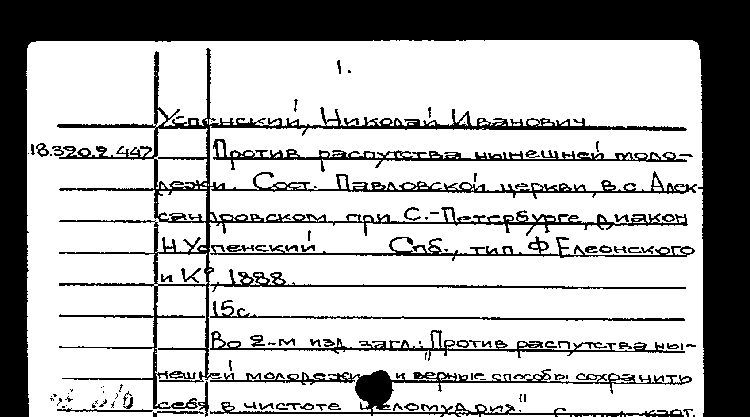 1.
Успенский, Николай Иванович
18.320.2.447 Против распутства нынешней моло-
дежи. Сост. Павловской церкви, в с. Алек-
сандровском, при С.-Петербурге, диакон
Н. Успенский. Спб., тип. Ф. Елеонского
и К°, 1888.
15 с.
Во 2-м изд. загл.: "Против распутства ны-
нешней молодежи и верные способы сохранить
себя в чистоте целомудрия"